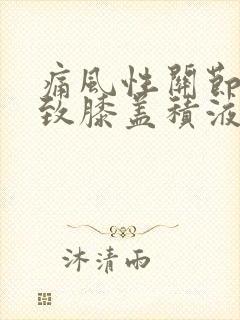 痛風性關節
致膝蓋積液
沐清雨